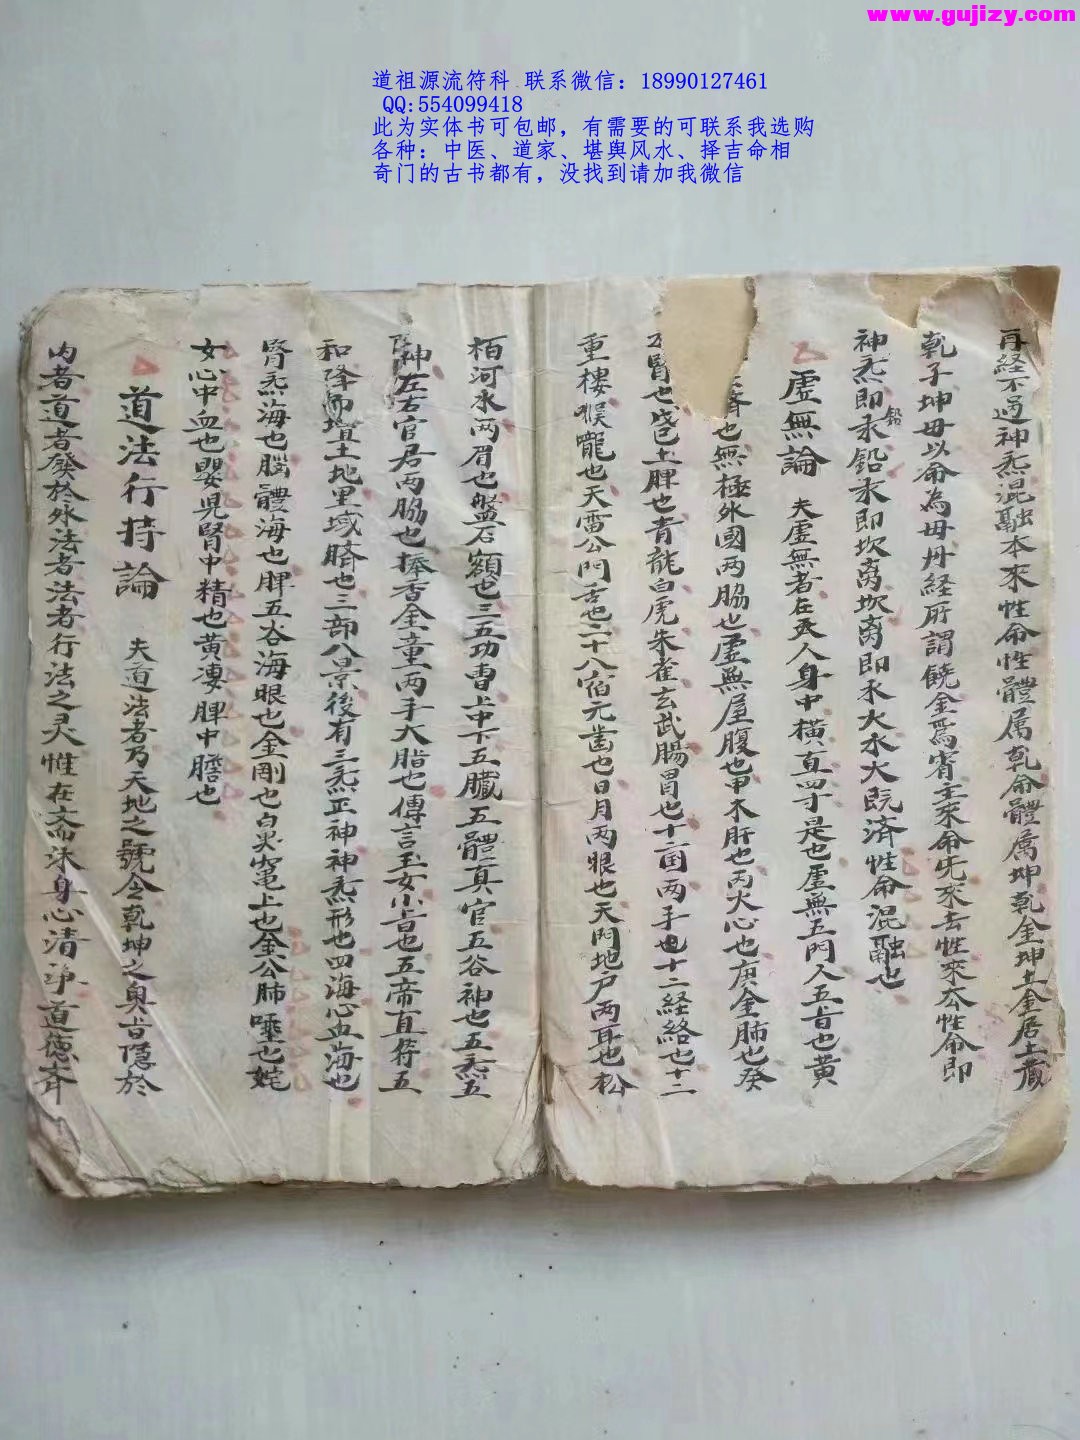 www.gujizy.com
道祖源流符科 联系微信：18990127461
QQ:554099418
此为实体书可包邮，有需要的可联系我选购
各种：中医、道家、堪舆风水、择吉命相
奇门的古书都有，没找到请加我微信
再经不過神炁混融本來性命性體属乾命體属坤乾金坤土金居土藏
乾子坤母以命為母丹経所謂饒金為賓主來命先來去性來性命即
神炁即汞鉛汞即坎离坎离即水火水火既済性命混融也
鉛
虛無論 夫虛無者在人身中横直四寸是也虛無五門人五旨也黄
済也無極外國两脇也虛無屋腹也甲木肝也丙火心也庚金肺也癸
腎也戊巳土脾也青龍白虎朱雀玄武腸胃也十二國两手也十二経絡也十二
重樓喉嚨也天雷公門舌也二十八宿元歯也日月两眼也天門地户两耳也松
栢河水两眉也盤石額也三五功曹上中下五臓五體真官五谷神也五炁五
神左右官居两脇也捧香金童两手大脂也傳言玉女小旨也五帝直符五
和降師土地里域臍也三部八景後有三炁正神神炁形也四海心血海也
腎炁海也腦體海也脾五谷海眼也金剛也白灵竃上也金公肺唾也姹
女心中血也嬰児腎中精也黄凄脾中膽也
道法行持論 夫道法者乃天地之號令乾坤之奥旨隱於
内者道者發於外法者法者行法之灵性在斋沐身心清净道德